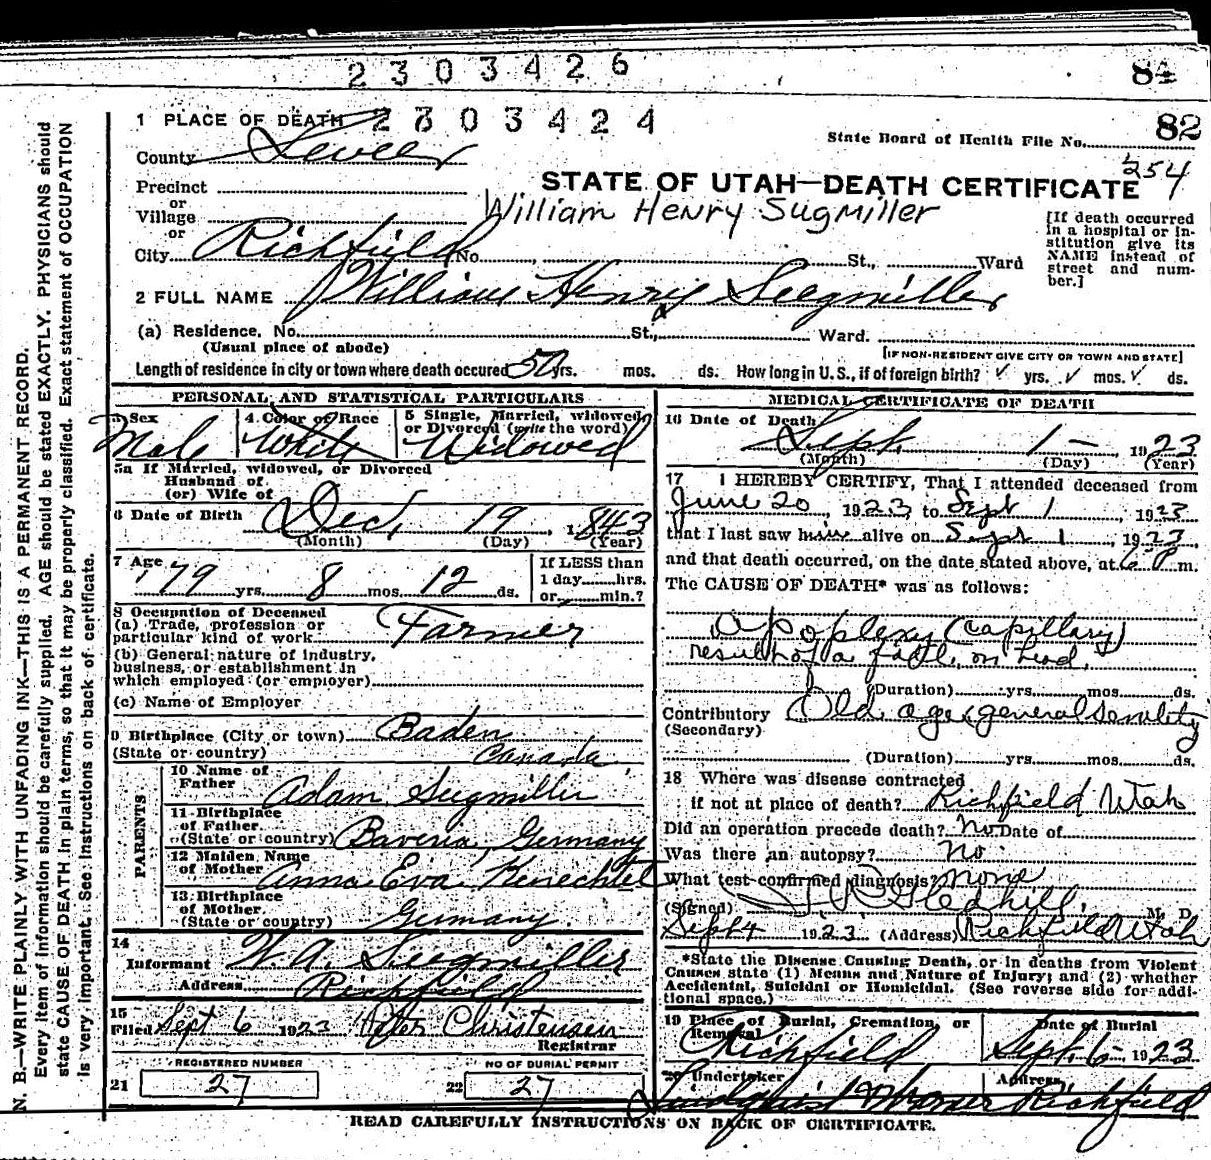 2303426
84
1 PLACE OF DEATH 2303424
State Board of Health File No. 82
254
County Sevier
Precinct
or
Village
or
City Richfield No. St., Ward
STATE OF UTAH—DEATH CERTIFICATE
William Henry Sugmiller
[If death occurred
in a hospital or in-
stitution give its
NAME instead of
street and num-
ber.]
2 FULL NAME William Henry Seegmiller
(a) Residence, No. St., Ward.
(Usual place of abode)
[IF NON-RESIDENT GIVE CITY OR TOWN AND STATE]
Length of residence in city or town where death occured 50 yrs. mos. ds. How long in U. S., if of foreign birth? ✓ yrs. ✓ mos. ✓ ds.
PERSONAL AND STATISTICAL PARTICULARS
3 Sex
Male
4 Color or Race
White
5 Single, Married, widowed,
or Divorced (write the word)
Widowed
5a If Married, widowed, or Divorced
Husband of
(or) Wife of
6 Date of Birth Dec. 19 1843
(Month) (Day) (Year)
7 Age 79 yrs. 8 mos. 12 ds.
If LESS than
1 day hrs.
or min.?
8 Occupation of Deceased
(a) Trade, profession or
particular kind of work Farmer
(b) General nature of industry,
business, or establishment in
which employed (or employer)
(c) Name of Employer
9 Birthplace (City or town) Baden
(State or country) Canada
PARENTS
10 Name of
Father Adam Seegmiller
11 Birthplace
of Father
(State or country) Baveria, Germany
12 Maiden Name
of Mother Anna Eva
13 Birthplace
of Mother
(State or country) Germany
14
Informant W. A. Seegmiller
Address Richfield
15
Filed Sept 6 1923 Peter Christensen
Registrar
REGISTERED NUMBER
21 27
NO OF BURIAL PERMIT
22 27
MEDICAL CERTIFICATE OF DEATH
16 Date of Death
Sept. 1 — 1923
(Month) (Day) (Year)
17 I HEREBY CERTIFY, That I attended deceased from
June 20, 1923, to Sept 1, 1923
that I last saw him alive on Sept 1, 1923,
and that death occurred, on the date stated above, at 6 P m.
The CAUSE OF DEATH* was as follows:
Apoplexy (capillary)
result of a fall on head.
(Duration) yrs. mos. ds.
Contributory Old age & general senility
(Secondary)
(Duration) yrs. mos. ds.
18 Where was disease contracted
if not at place of death? Richfield Utah
Did an operation precede death? No Date of
Was there an autopsy? No.
What test confirmed diagnosis? none
(Signed) J R Gledhill, M. D.
Sept 4 1923 (Address) Richfield Utah
*State the Disease Causing Death, or in deaths from Violent
Causes state (1) Means and Nature of Injury; and (2) whether
Accidental, Suicidal or Homicidal. (See reverse side for addi-
tional space.)
19 Place of Burial, Cremation, or
Removal
Richfield
Date of Burial
Sept. 6 1923
20 Undertaker Address
Richfield
READ CAREFULLY INSTRUCTIONS ON BACK OF CERTIFICATE.
N. B.—WRITE PLAINLY WITH UNFADING INK—THIS IS A PERMANENT RECORD.
Every item of information should be carefully supplied. AGE should be stated EXACTLY. PHYSICIANS should
state CAUSE OF DEATH in plain terms, so that it may be properly classified. Exact statement of OCCUPATION
is very important. See Instructions on back of certificate.